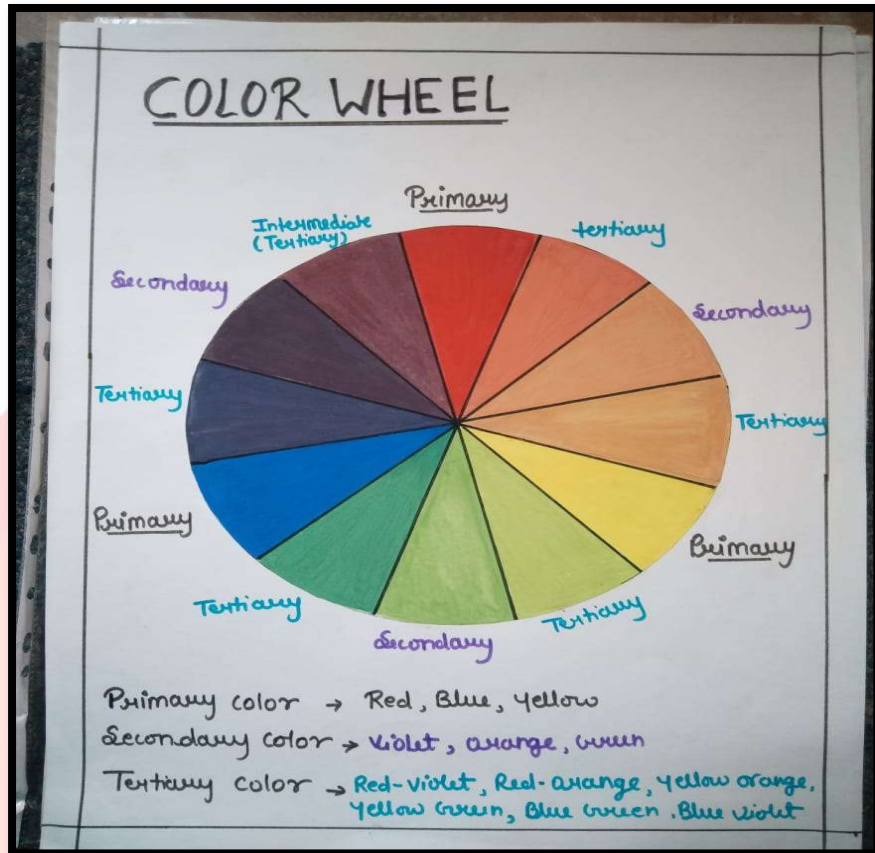 COLOR WHEEL
Primary
Intermediate
(Tertiary)
tertiary
Secondary
Secondary
Tertiary
Tertiary
Primary
Primary
Tertiary
Tertiary
Secondary
Primary color → Red, Blue, Yellow
Secondary color → Violet, orange, Green
Tertiary color → Red-violet, Red-orange, Yellow orange,
Yellow Green, Blue Green, Blue violet